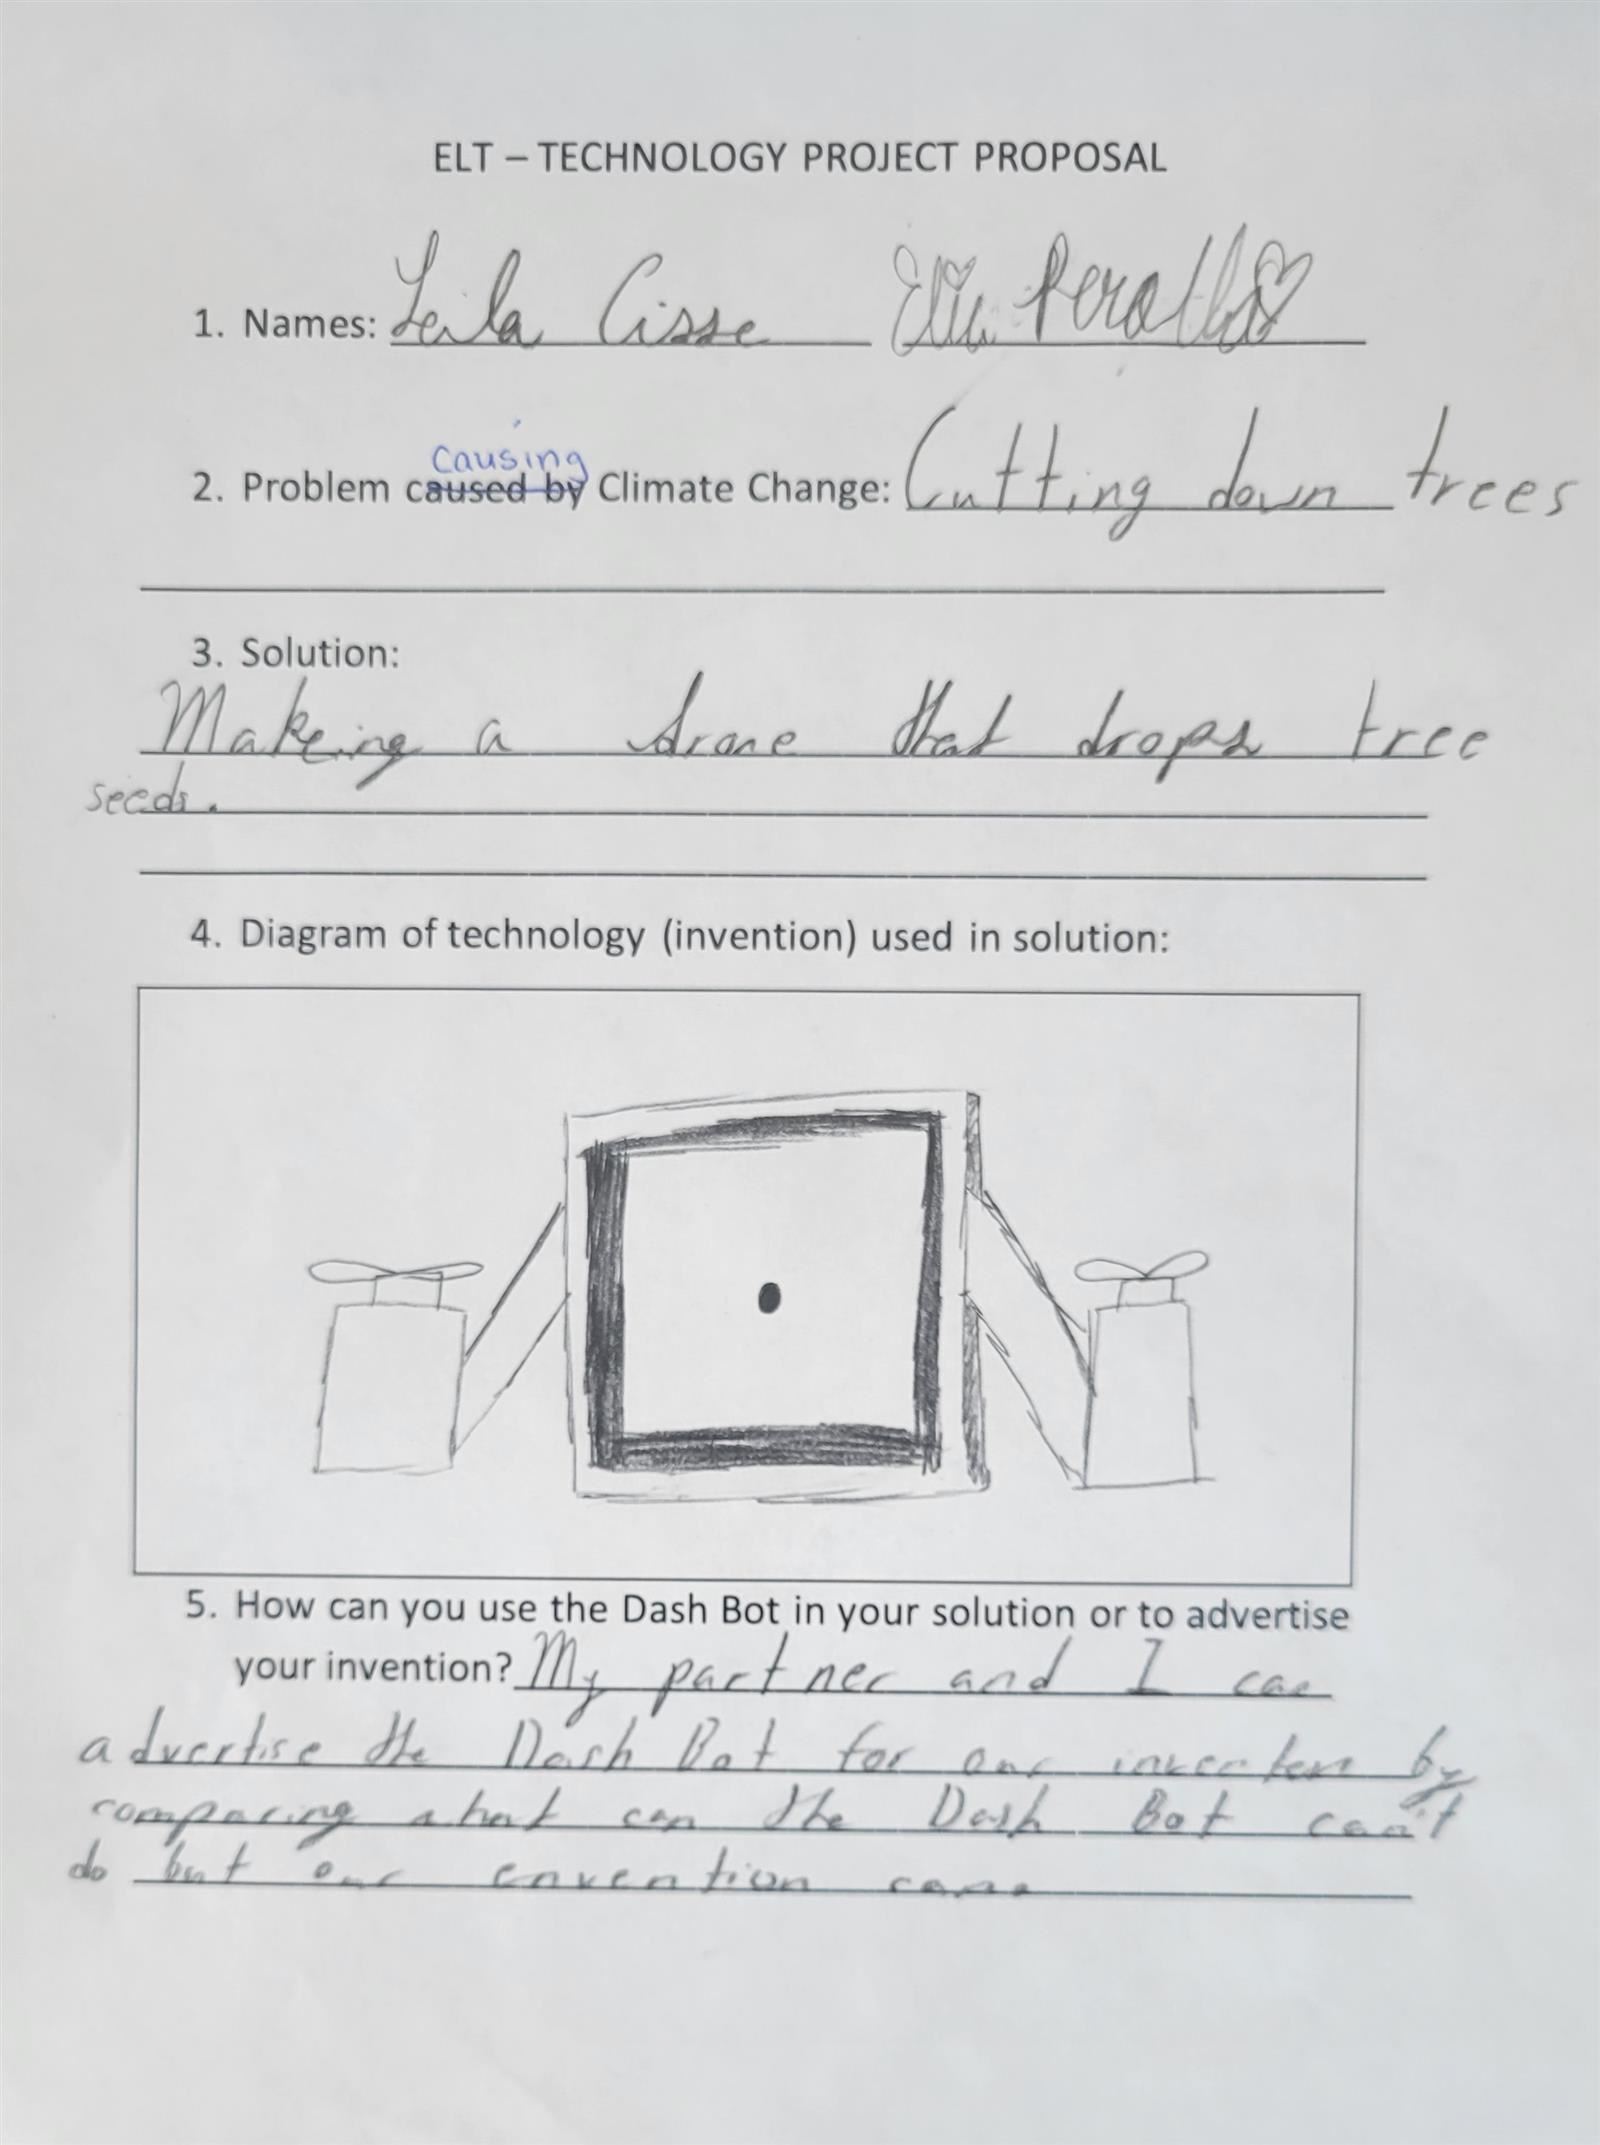 ELT – TECHNOLOGY PROJECT PROPOSAL
1. Names: Leila Cisse
causing
2. Problem caused by Climate Change: Cutting down trees
3. Solution:
Makeing a drone that drops tree
seeds.
4. Diagram of technology (invention) used in solution:
5. How can you use the Dash Bot in your solution or to advertise
your invention? My partner and I can
advertise the Dash Bot for our by
comparing what can the Dash Bot can't
do but our envention can.